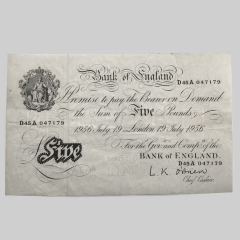 Bank of England
D45A 047179 D45A 047179
Promise to pay the Bearer on Demand
the Sum of Five Pounds
1956 July 19 London 19 July 1956
For the Govr. and Compa. of the
BANK OF ENGLAND.
D45A 047179
Five
L K O'Brien
Chief Cashier